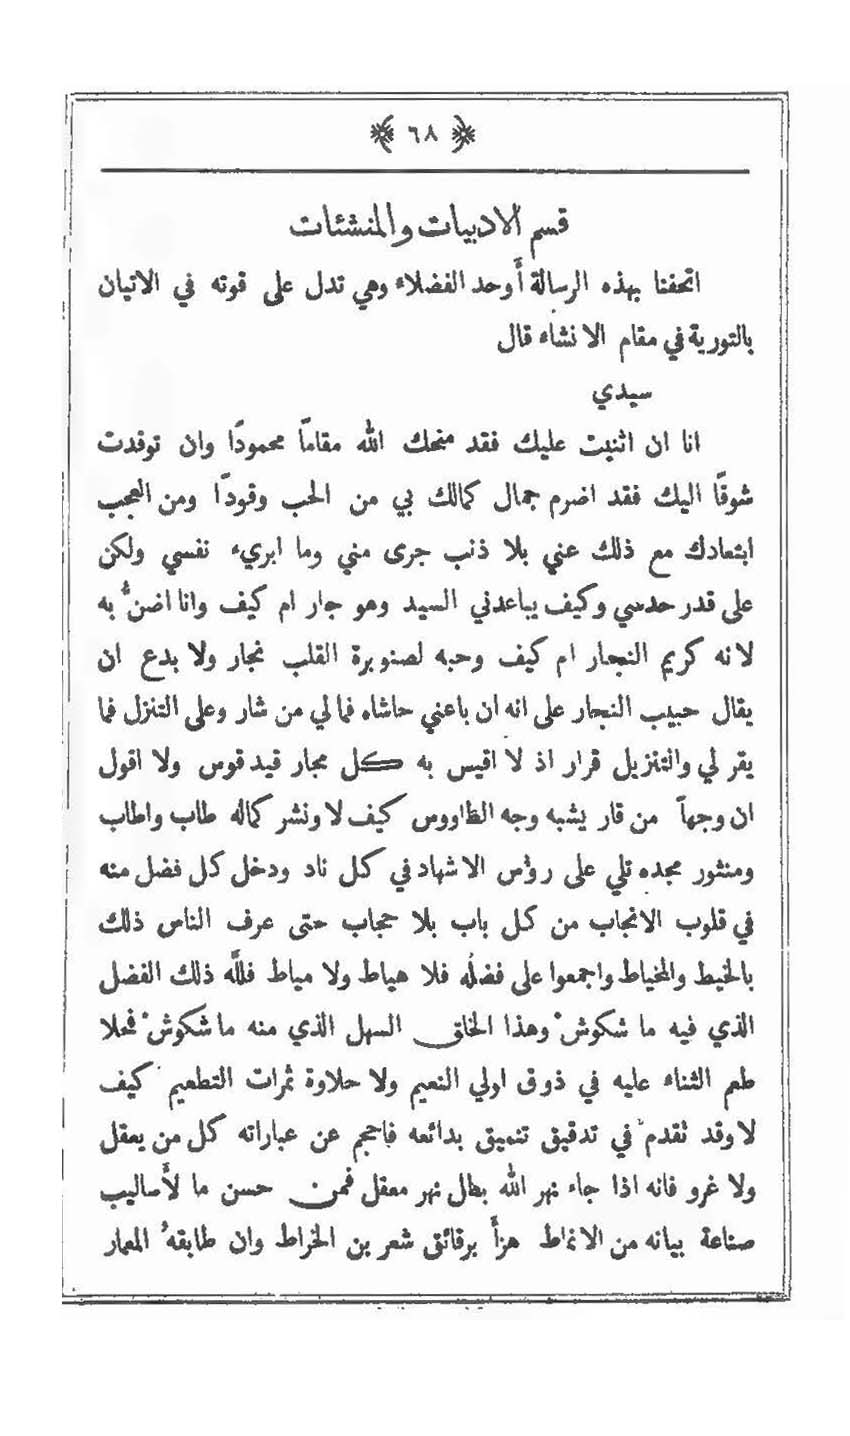 ٦٨
قسم الادبيات والمنشئات
اتحفنا بهذه الرسالة أوحد الفضلاء وهي تدل على قوته في الاتيان
بالتورية في مقام الانشاء قال
سيدي
انا ان اثنيت عليك فقد منحك الله مقاماً محمودًا وان توفدت
شوقًا اليك فقد اضرم جمال كمالك بي من الحب وقودًا ومن العجب
ابتعادك مع ذلك عني بلا ذنب جرى مني وما ابريء نفسي ولكن
على قدر حدسي وكيف يباعدني السيد وهو جار ام كيف وانا اضنُّ به
لانه كريم النجار ام كيف وحبه لصنوبرة القلب نجار ولا بدع ان
يقال حبيب النجار على انه ان باعني حاشاه فما لي من شار وعلى التنزل فما
يقر لي والتنزيل قرار اذ لا اقيس به كل مجار قيد قوس ولا اقول
ان وجهاً من قار يشبه وجه الطاووس كيف لا ونشر كماله طاب واطاب
ومنثور مجده تلي على رؤس الاشهاد في كل ناد ودخل كل فضل منه
في قلوب الانجاب من كل باب بلا حجاب حتى عرف الناس ذلك
بالخيط والمخياط واجمعوا على فضله فلا هياط ولا مياط فللَّه ذلك الفضل
الذي فيه ما شكوش وهذا الخلق السهل الذي منه ما شكوش فحلا
طعم الثناء عليه في ذوق اولي النعيم ولا حلاوة ثمرات التطعيم كيف
لا وقد تقدم في تدقيق تنميق بدائعه فاحجم عن عباراته كل من يعقل
ولا غرو فانه اذا جاء نهر الله بطل نهر معقل فمن حسن ما لأساليب
صناعة بيانه من الانماط هزأ برقائق شعر بن الخراط وان طابقهُ المعمار